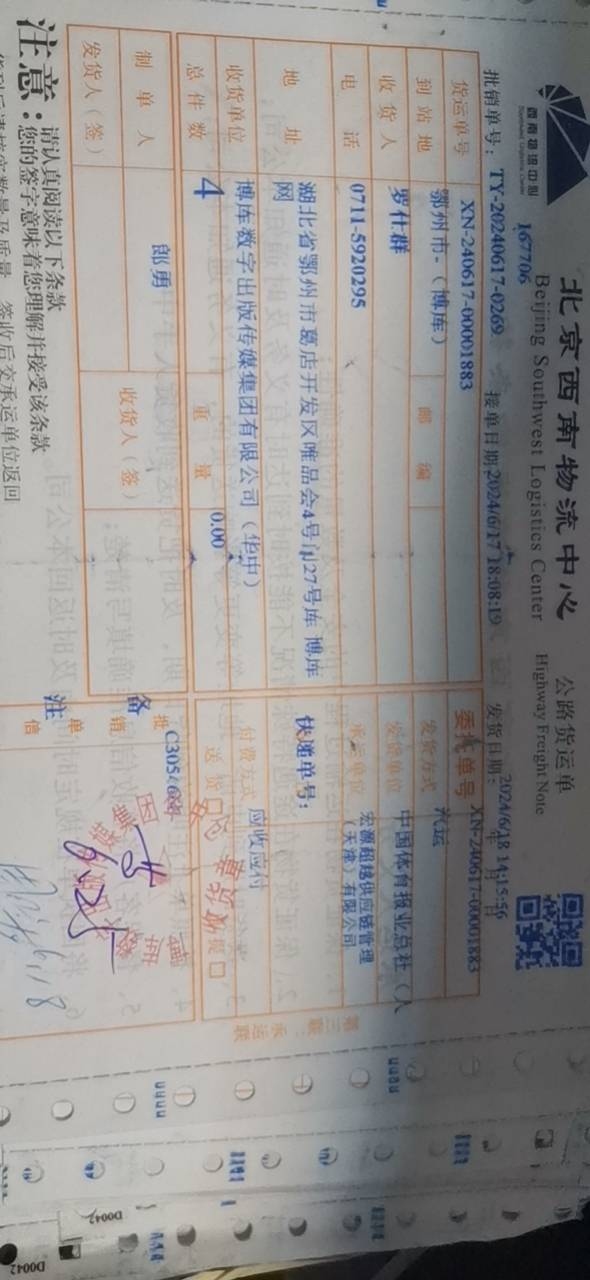 西南物流中心
Southwest Logistics Center
北京西南物流中心
Beijing Southwest Logistics Center
公路货运单
Highway Freight Note
167706
批销单号: TY-20240617-0269 接单日期 2024/6/17 18:08:19 发货日期: 2024/6/18 14:15:56
年 月 日
货运单号 XN-240617-00001883 委托单号 XN-240617-00001883
到站地 鄂州市-（博库） 邮编 发货方式 汽运
收货人 罗仕群 发货单位 中国体育报业总社（人
电话 0711-5920295 承运单位 宏源超越供应链管理
（天津）有限公司
地址 湖北省鄂州市葛店开发区唯品会4号门27号库 博库
网
快递单号:
收货单位 博库数字出版传媒集团有限公司（华中） 付费方式 应收应付
总件数 4 重量 0.00 送货□ 提□
收货章
制单人 郎勇 收货人（签）
发货人（签）
备注
批销单信
第三联：承运联
注意：
请认真阅读以下条款
您的签字意味着您理解并接受该条款
签收后交承运单位返回
D0042
D0042